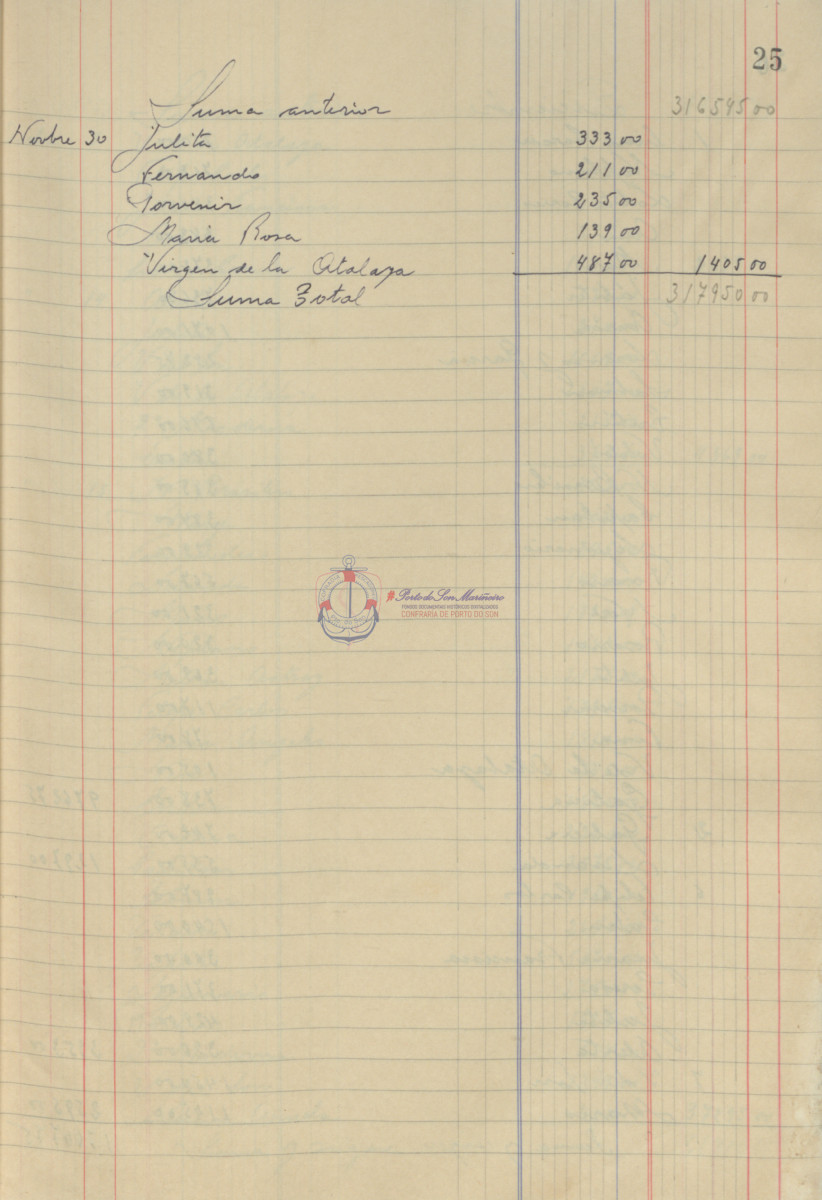 25
Suma anterior 316545 00
Novbre 30 Julita 333 00
Fernando 211 00
Porvenir 235 00
Maria Rosa 139 00
Virgen de la Atalaya 487 00 1405 00
Suma Total 317950 00
Porto do Son Mariñeiro
FONDOS DOCUMENTAIS HISTÓRICOS DIXITALIZADOS
CONFRARÍA DE PORTO DO SON